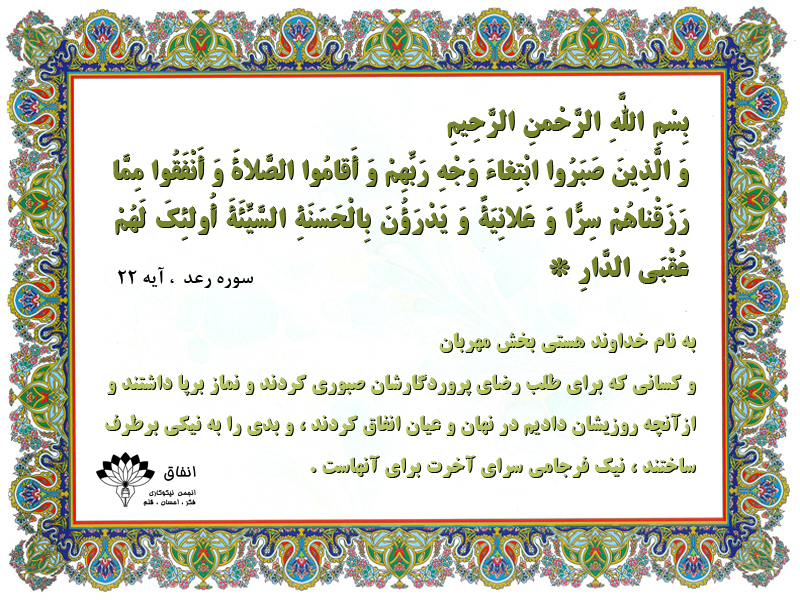 بِسْمِ اللَّهِ الرَّحْمنِ الرَّحِيمِ
وَ الَّذِينَ صَبَرُوا ابْتِغاءَ وَجْهِ رَبِّهِمْ وَ أَقامُوا الصَّلاةَ وَ أَنْفَقُوا مِمَّا
رَزَقْناهُمْ سِرًّا وَ عَلانِيَةً وَ يَدْرَؤُنَ بِالْحَسَنَةِ السَّيِّئَةَ أُولئِکَ لَهُمْ
عُقْبَى الدَّارِ *
سوره رعد ، آیه ۲۲
به نام خداوند هستی بخش مهربان
و کسانی که برای طلب رضای پروردگارشان صبوری کردند و نماز برپا داشتند و
ازآنچه روزیشان دادیم در نهان و عیان انفاق کردند ، و بدی را به نیکی برطرف
ساختند ، نیک فرجامی سرای آخرت برای آنهاست .
انفاق
انجمن نیکوکاری
فکر ، احسان ، قلم